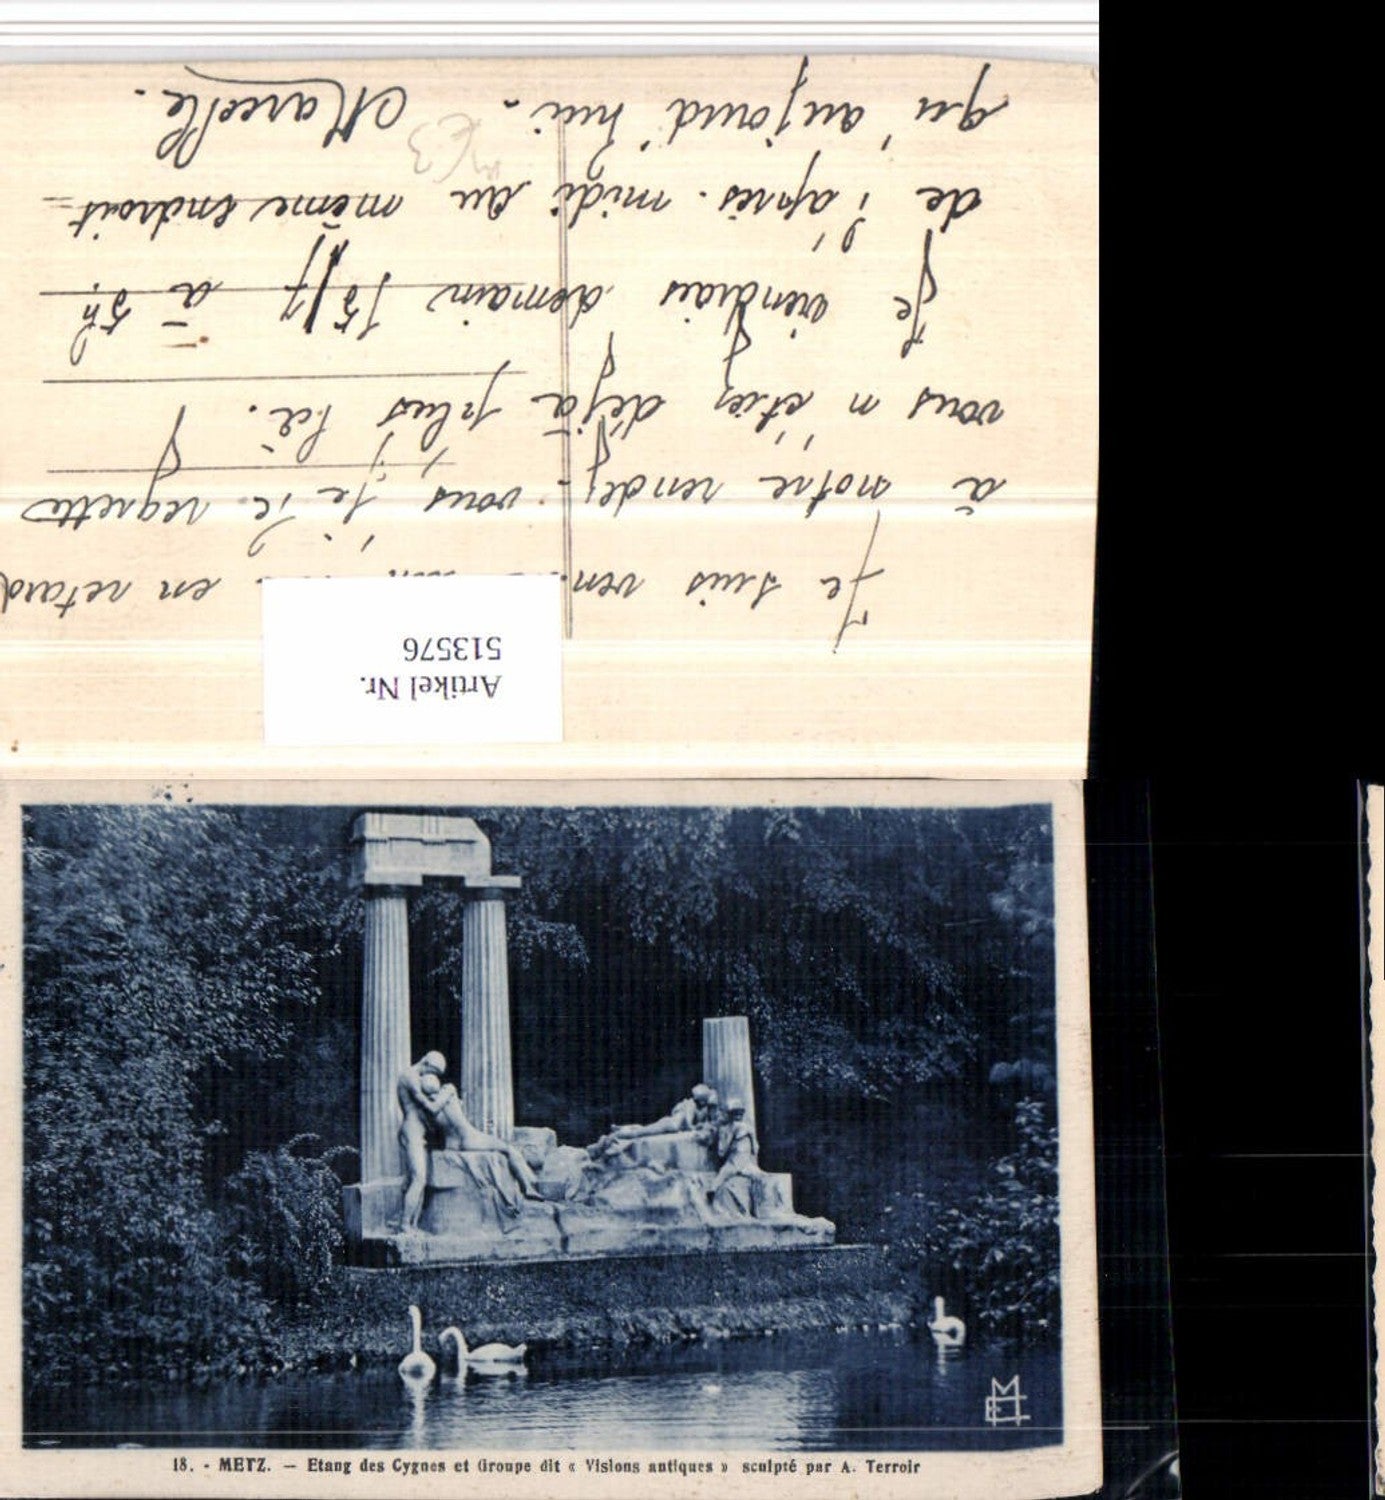 Je suis en retard
à notre rendez-vous, je le regrette
vous n'étiez déjà plus là.
Je viendrais demain 15/7 à 5h
de l'après-midi au même endroit
qu'aujourd'hui - Marcelle.
Artikel Nr.
513576
18. - METZ. — Etang des Cygnes et Groupe dit « Visions antiques » sculpté par A. Terroir